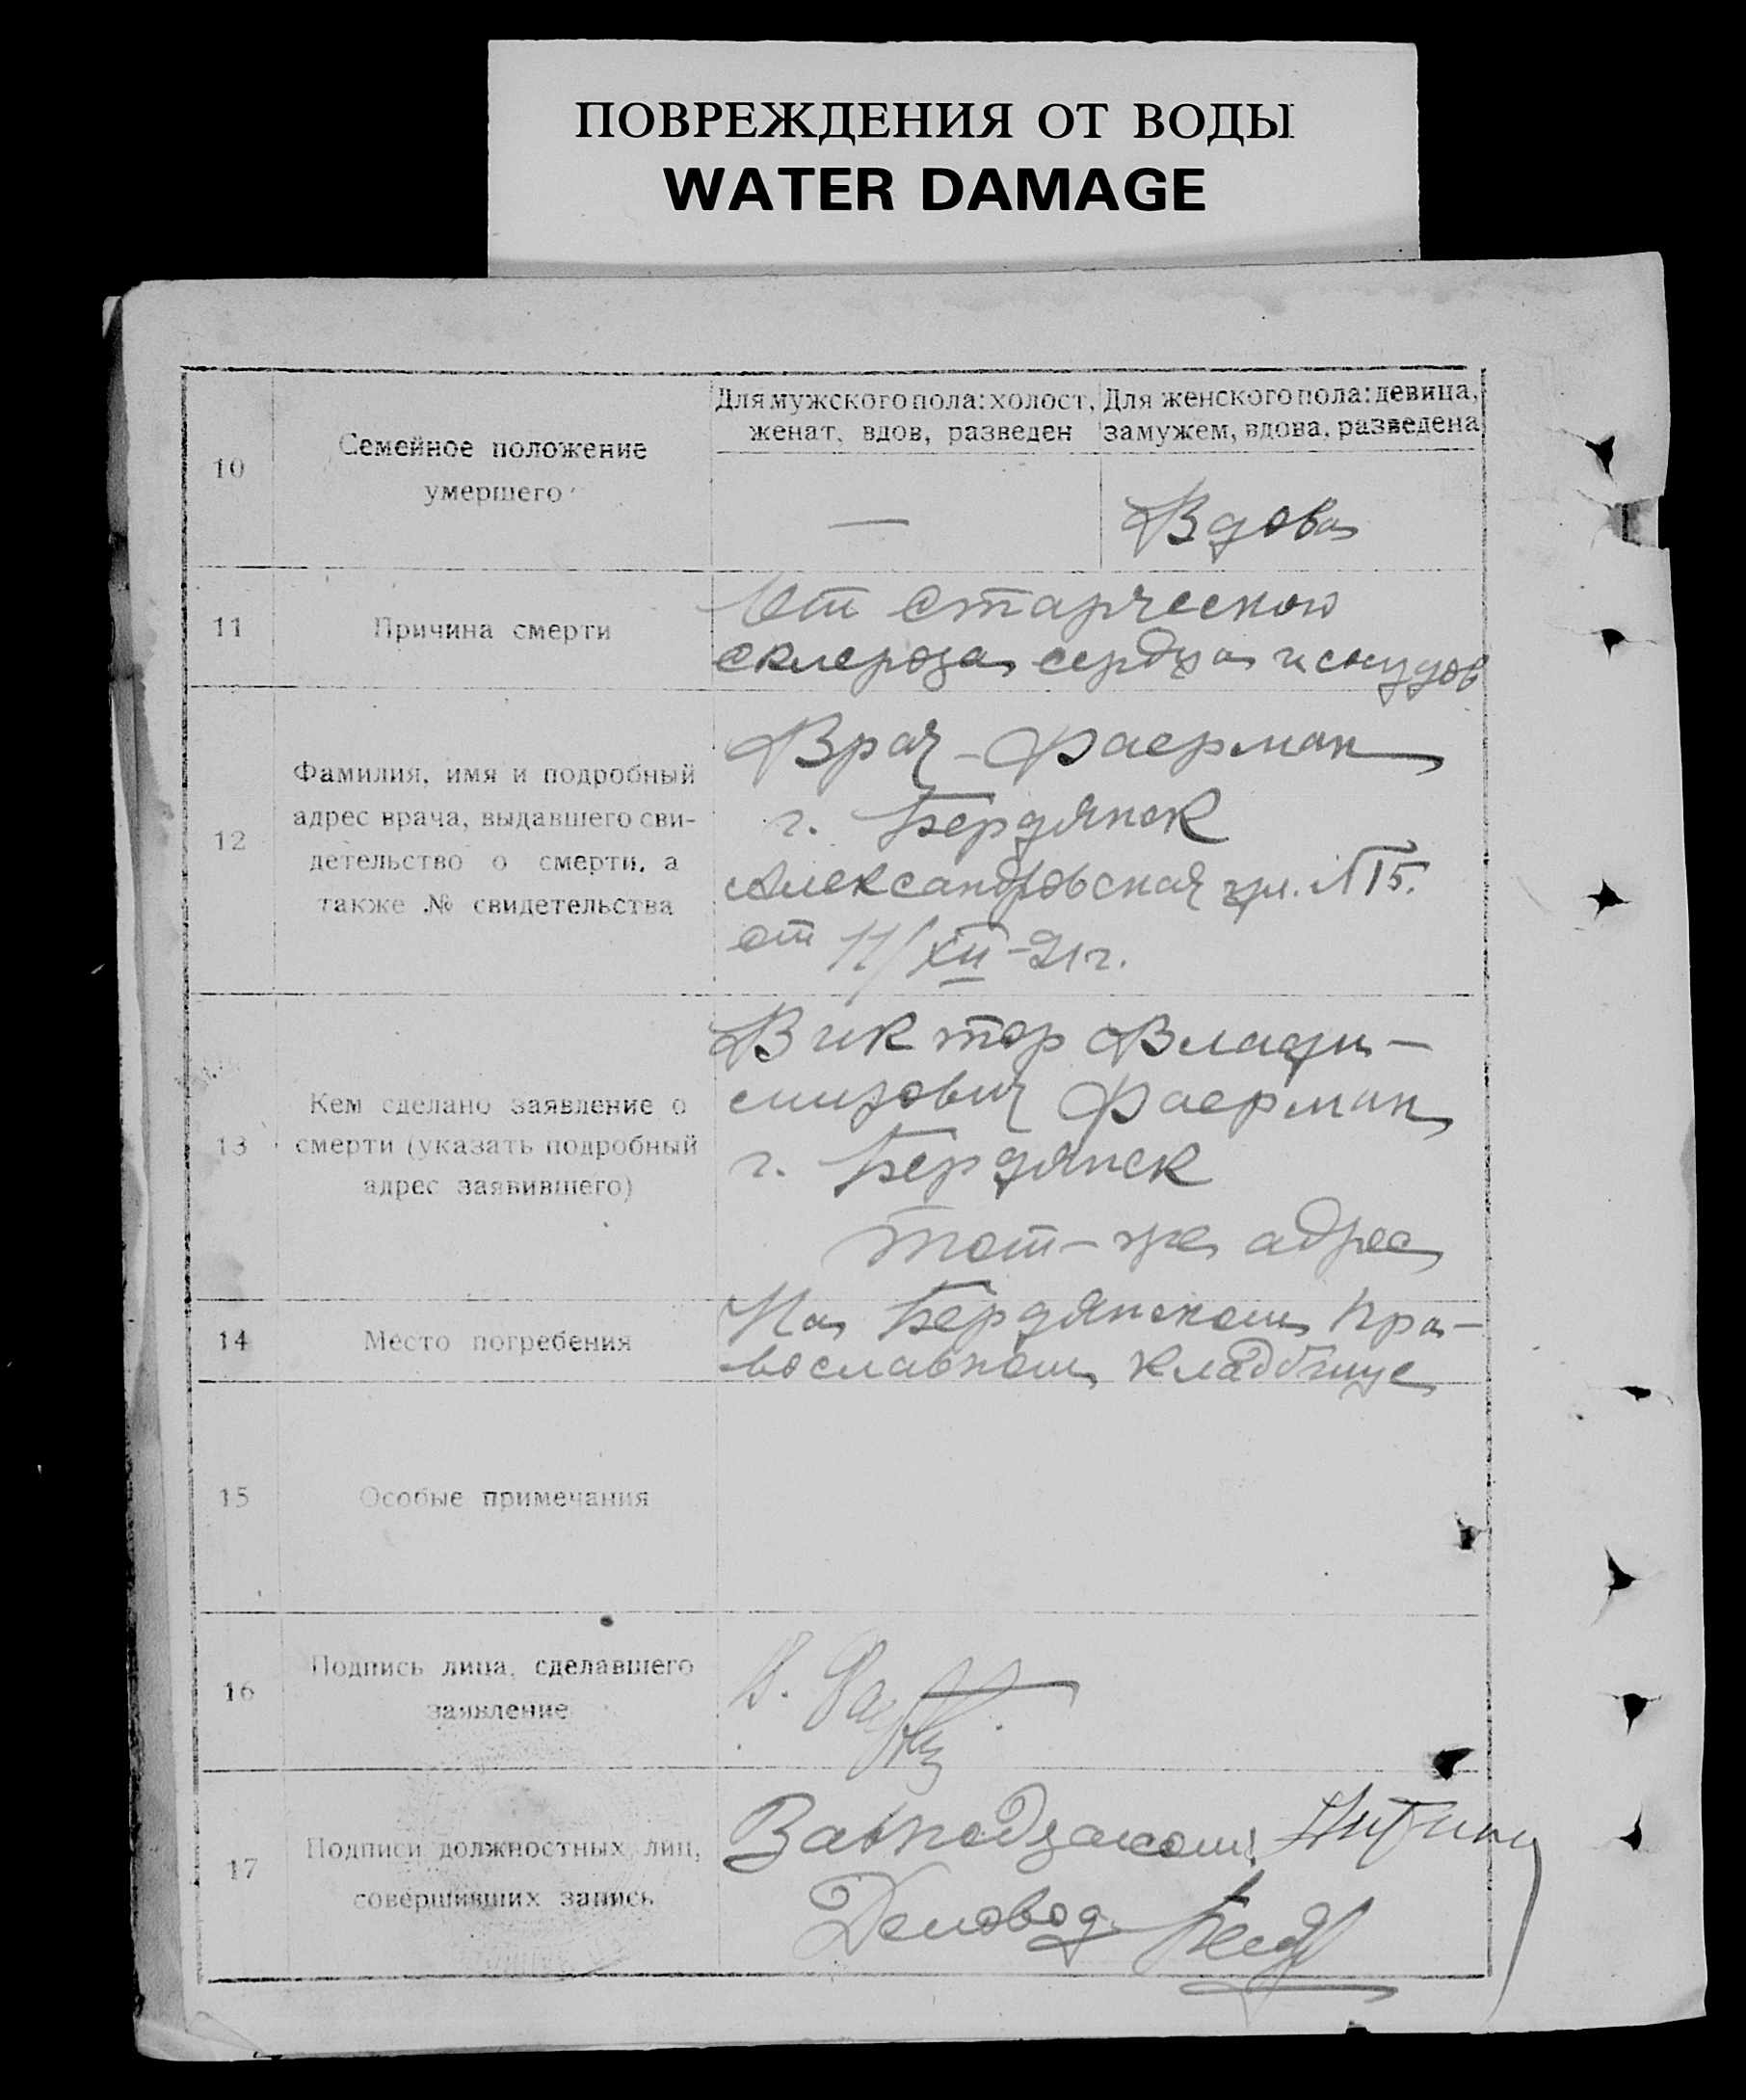 ПОВРЕЖДЕНИЯ ОТ ВОДЫ
WATER DAMAGE
10
Семейное положение
умершего
Для мужского пола: холост,
женат, вдов, разведен
Для женского пола: девица,
замужем, вдова, разведена
—
Вдова
11
Причина смерти
От старческого
склероза сердца и сосудов
12
Фамилия, имя и подробный
адрес врача, выдавшего сви-
детельство о смерти, а
также № свидетельства
Врач - Фаерман
г. Бердянск
Александровская ул. № 15.
от 11/XII-21г.
13
Кем сделано заявление о
смерти (указать подробный
адрес заявившего)
Виктор Влади-
мирович Фаерман
г. Бердянск
тот-же адрес
14
Место погребения
На Бердянском Пра-
вославном кладбище
15
Особые примечания
16
Подпись лица, сделавшего
заявление
В.
17
Подписи должностных лиц,
совершивших запись
Завподзагсом
Деловод